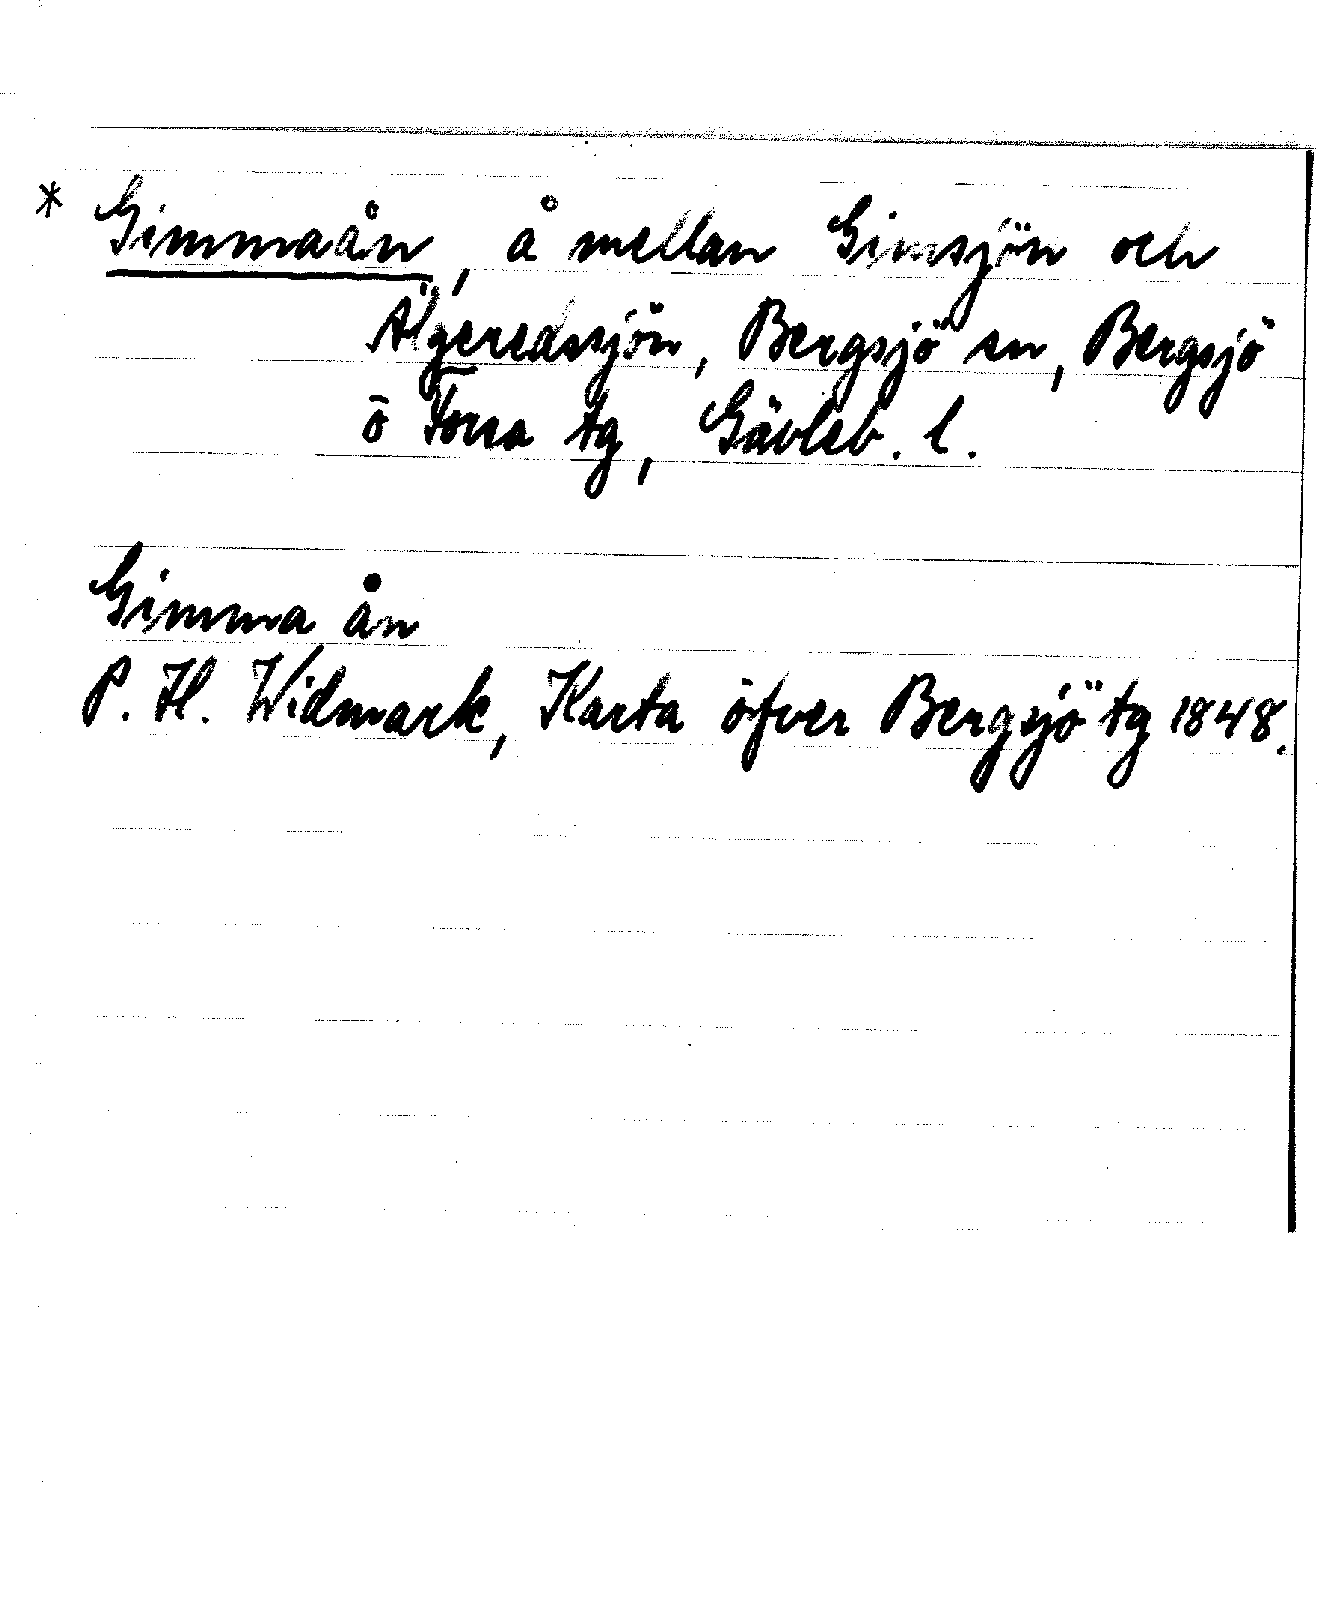 * Gimmaån, å mellan Gimsjön och
Älgeredssjön, Bergsjö sn, Bergsjö
o Forsa tg, Gävleb. l.
Gimma ån
P. H. Widmark, Karta öfver Bergsjö tg 1848.